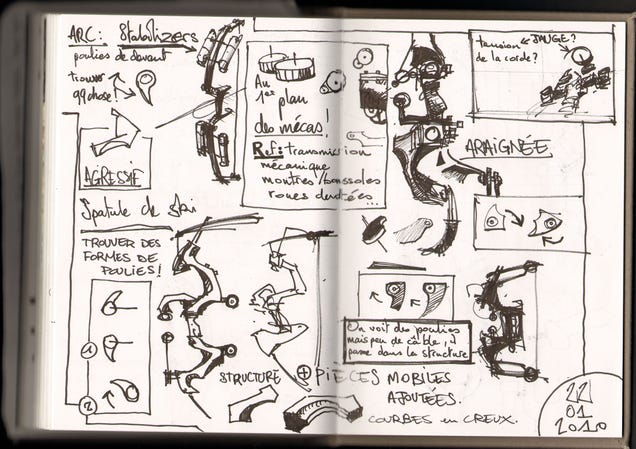 ARC: Stabilizers
poulies de devant
trouver
qqchose!
AGRESSIF
Spatule de ski
TROUVER DES
FORMES DE
POULIES!
1
2
Au
1er plan
des mécas!
Ref: transmission
mécanique
montres/boussoles
roues dentées...
JAUGE?
tension
de la corde?
ARAIGNÉE
On voit des poulies
mais peu de câble, il
passe dans la structure
STRUCTURE + PIÈCES MOBILES
AJOUTÉES.
COURBES en CREUX.
22
01
2010